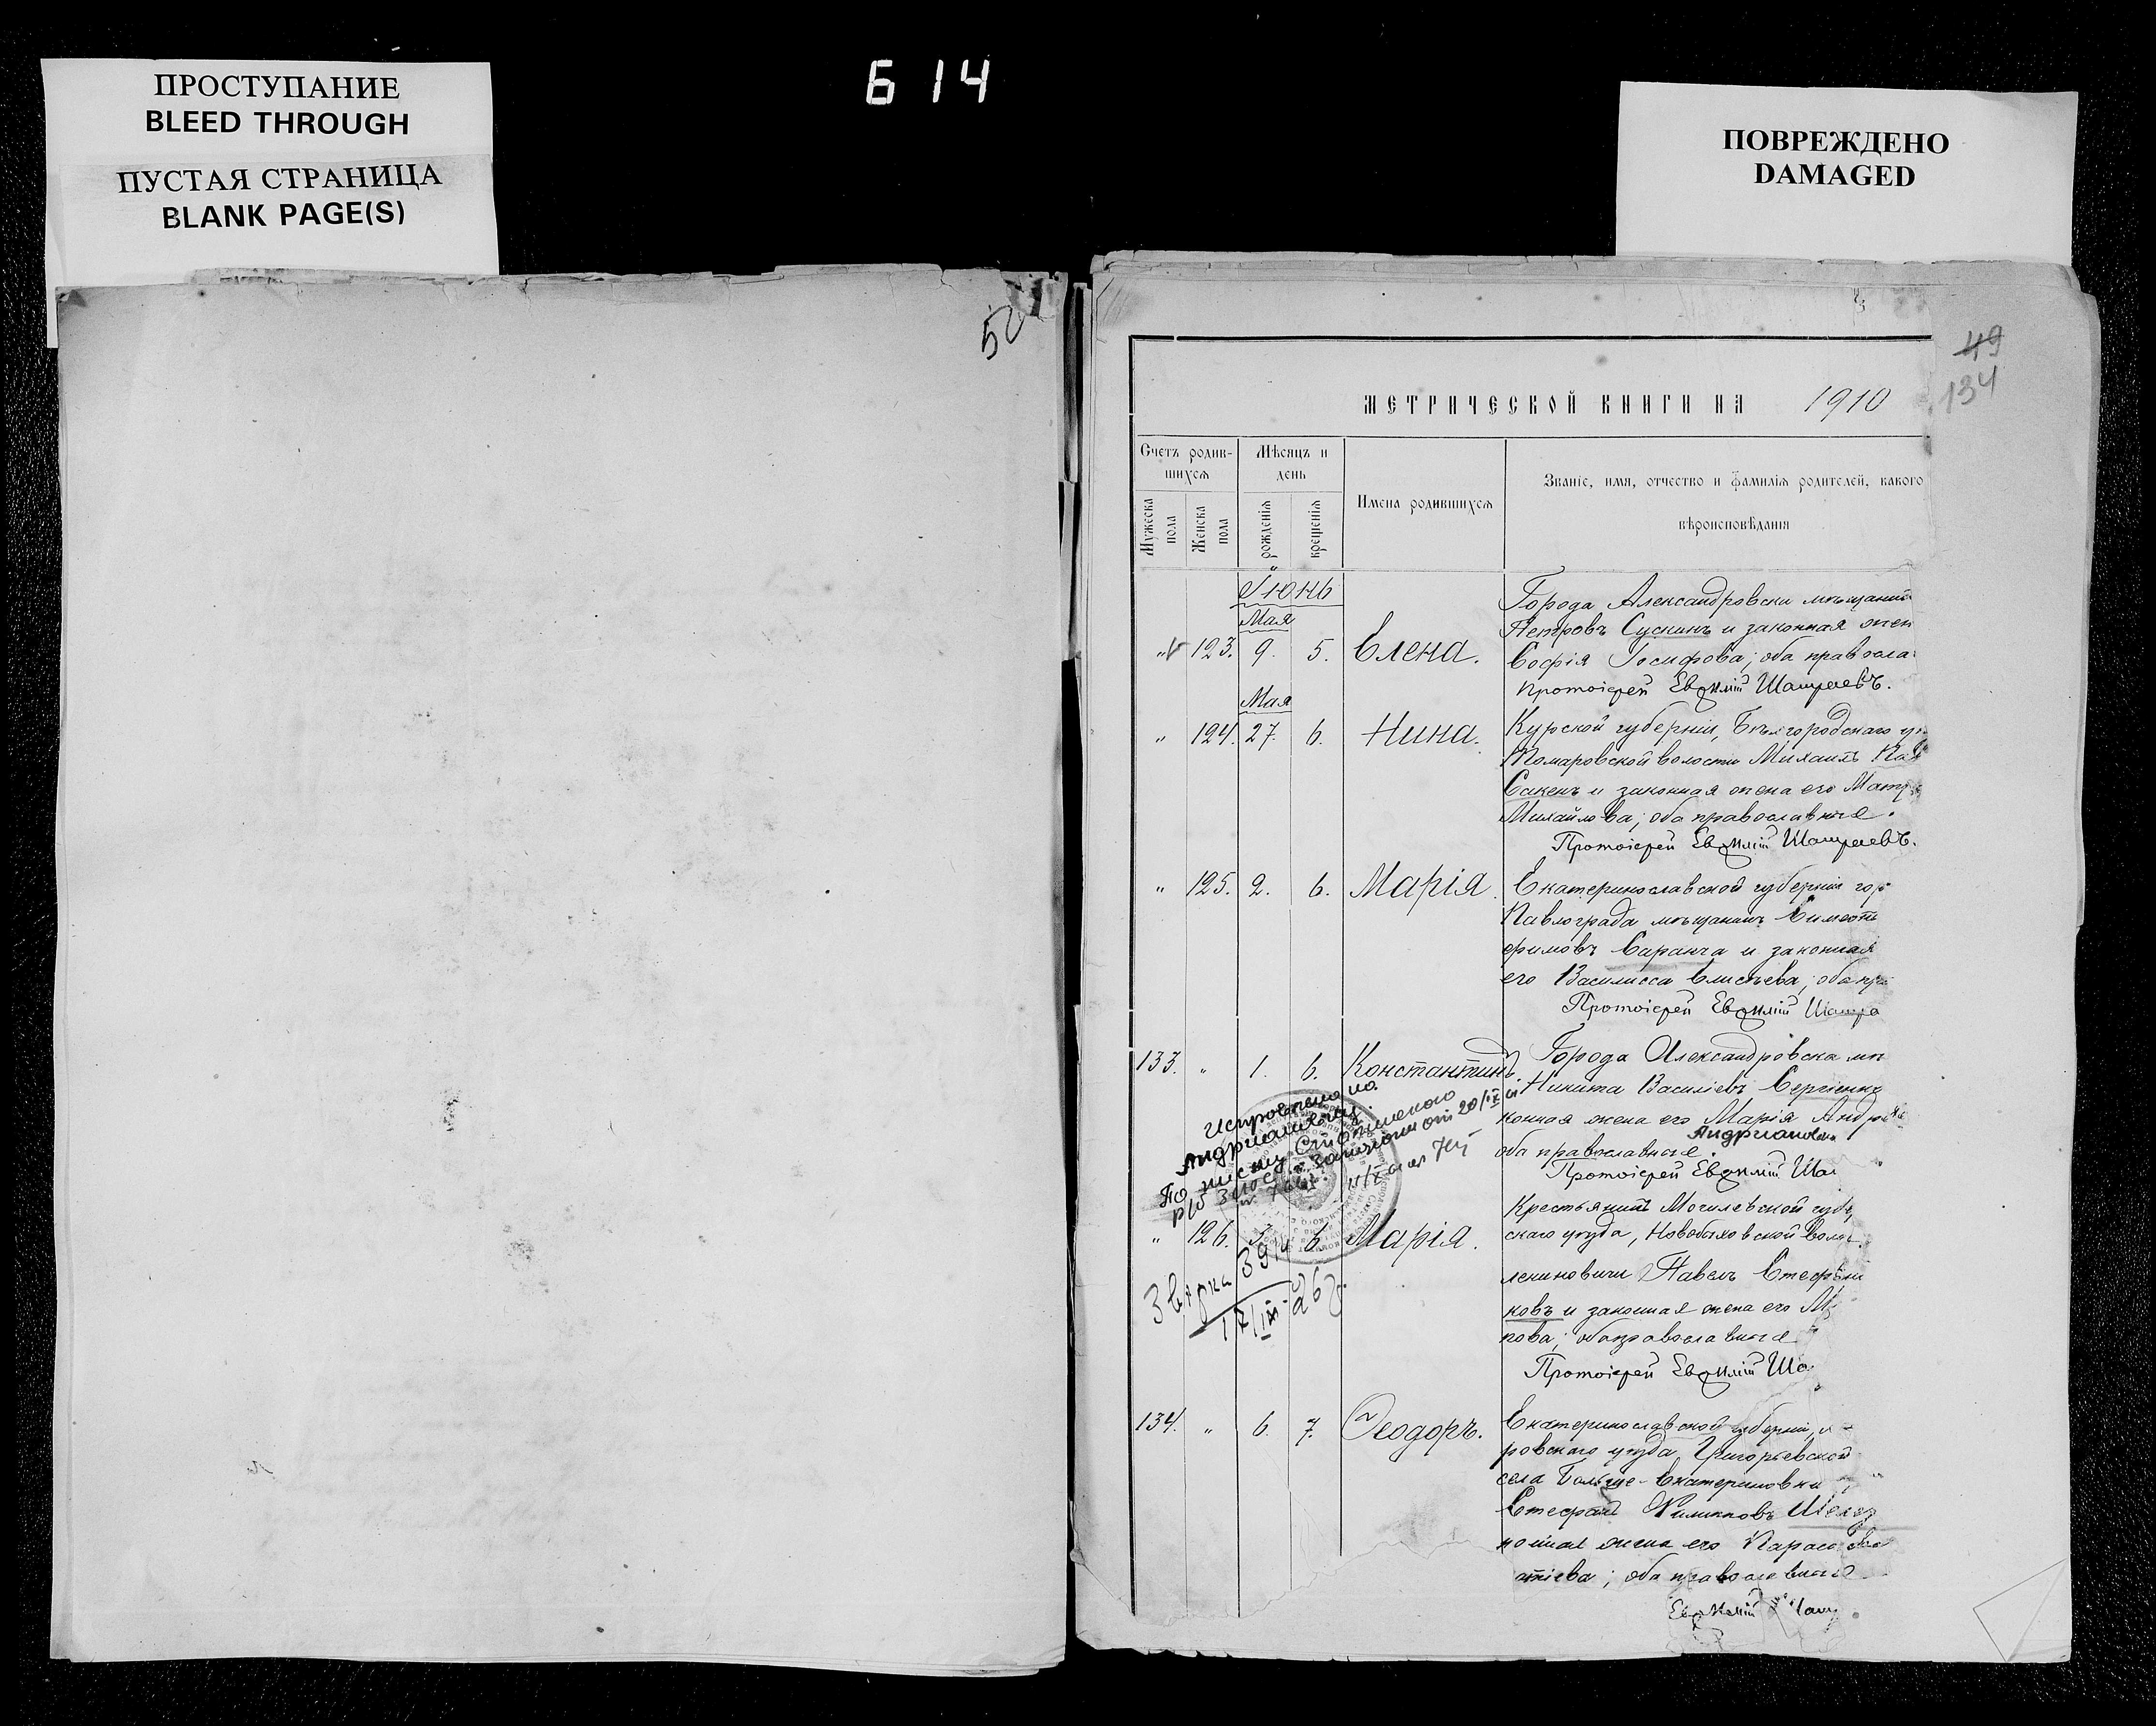 ПРОСТУПАНИЕ
BLEED THROUGH
ПУСТАЯ СТРАНИЦА
BLANK PAGE(S)
Б 14
ПОВРЕЖДЕНО
DAMAGED
52
49
134
МЕТРИЧЕСКОЙ КНИГИ НА 1910
Счетъ родив-
шихся
Мужеска пола
Женска пола
Мѣсяцъ и
день
рожденія
крещенія
Имена родившихся
Званіе, имя, отчество и фамилія родителей, какого
вѣроисповѣданія
Іюнь
Мая
" 123. 9. 5. Елена.
Города Александровска мѣщанин
Петровъ Сускинъ и законная жен
Софія Іосифова; оба правосла
Протоіерей Евѳимій
Мая
" 124. 27. 6. Нина.
Курской губерніи, Бѣлгородскаго у
Томаровской волости Михаилъ Пав
Сакенъ и законная жена его Матр
Михайлова; оба православные.
Протоіерей Евѳимій
" 125. 2. 6. Марія.
Екатеринославской губерніи гор
Павлограда мѣщанинъ Симеонъ
фимовъ Саранча и законная
его Василисса Елисѣева; оба пр
Протоіерей Евѳимій
133. " 1. 6. Константинъ.
Города Александровска мѣ
Никита Василіевъ Сергіенко
конная жена его Марія Андр
Андриановна
оба православные.
Протоіерей Евѳимій Ша
Исправлено на
Андриановну
По
" 126. 6. Марія.
Крестьянинъ Могилевской губе
скаго уѣзда, Новобыховской воло
лениновичи Павелъ Стефан
ковъ и законная жена его М
пова; оба православные
Протоіерей Евѳимій Ша
134. " 6. 7. Ѳеодоръ.
Екатеринославской губерніи,
ровскаго уѣзда, Григорьевской
села Больше-Екатериновки
Стефанъ Филипповъ
конная жена его Параскева
атіева; оба православные
Евѳимій